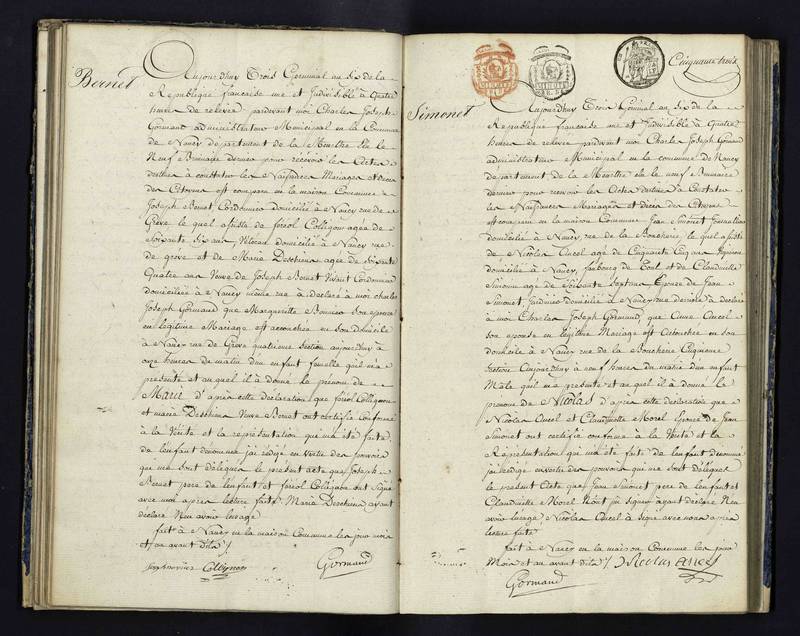 Bernet
Aujourdhuy Trois Germinal an Six de la
Republique francaise une et Indivisible à Quatre
heures de relevée pardevant moi Charles Joseph
Germand administrateur Municipal en la Commune
de Nancy departement de la Meurthe élu le
Neuf Brumaire dernier pour recevoir les Actes
destinés à constater les Naissances Mariages et décès
des Citoyens est comparu en la maison Commune
Joseph Bernet Cordonnier domicilié à Nancy rue de
Grève le quel assisté de foriol Collignon agée de
Soixante Six ans domicilié à Nancy rue
de greve et de Marie Deschiens agée de Soixante
Quatre ans Veuve de Joseph Bernet Vivant Cordonnier
domiciliée à Nancy même rue à déclaré à moi Charles
Joseph Germand que Margueritte son epouse
en legitime Mariage est accouchée en son domicile
à Nancy rue de Grève quatrieme Section aujourdhuy à
onze heures du matin d'un enfant femelle qu'il m'a
présenté et au quel il à donné le prenom de
Marie d'après cette déclaration que foriol Collignon
et marie Deschiens Veuve Bernet ont certifié Conforme
à la Vérité et la représentation qui m'a été faite
de l'enfant dénommé j'ai rédigé en vertu des pouvoirs
qui me sont délégués le present acte que Joseph
Bernet pere de l'enfant et foriol Collignon ont Signé
avec moi après lecture faite Marie Deschiens ayant
déclaré N'en avoir l'usage
fait à Nancy en la maison Commune les jour mois
et an avant dits
Collignon Germand
Cinquante trois
Simonet
Aujourdhuy Trois Germinal an Six de la
Republique française une et Indivisible à Quatre
heures de relevée pardevant moi Charles Joseph Germand
administrateur Municipal en la commune de Nancy
departement de la Meurthe élu le neuf Brumaire
dernier pour recevoir les Actes destinés à Constater
les Naissances Mariages et décès des Citoyens
est comparu en la maison Commune Jean Simonet Journalier
domicilié à Nancy, rue de la Boucherie, le quel assisté
de Nicolas Ancel agé de Cinquante Cinq ans Vigneron
domicilié à Nancy, faubourg de Toul et de Claudinette
Simonne agée de Soixante Sept ans Epouze de Jean
Simonet Jardinier domicilié à Nancy à declaré
à moi Charles Joseph Germand, que Ancel
son epouse en legitime Mariage est Accouchée en son
domicile à Nancy rue de la Boucherie Cinquieme
Section Aujourdhuy à neuf heures du matin d'un enfant
Male qu'il m'a présenté et au quel il à donné le
prenom de Nicolas d'après cette declaration que
Nicolas Ancel et Claudinette Morel Epouze de Jean
Simonet ont certifié conforme à la Vérité et la
Représentation qui m'a été faite de l'enfant dénommé
j'ai rédigé en vertu des pouvoirs qui me sont délégués
le present Acte que Jean Simonet pere de l'enfant et
Claudinette Morel N'ont pu signer ayant déclaré N'en
avoir l'usage, Nicolas Ancel à signé avec nous après
lecture faite
fait à Nancy en la maison Commune les jour
Mois et an avant dits Nicolas Ancel
Germand